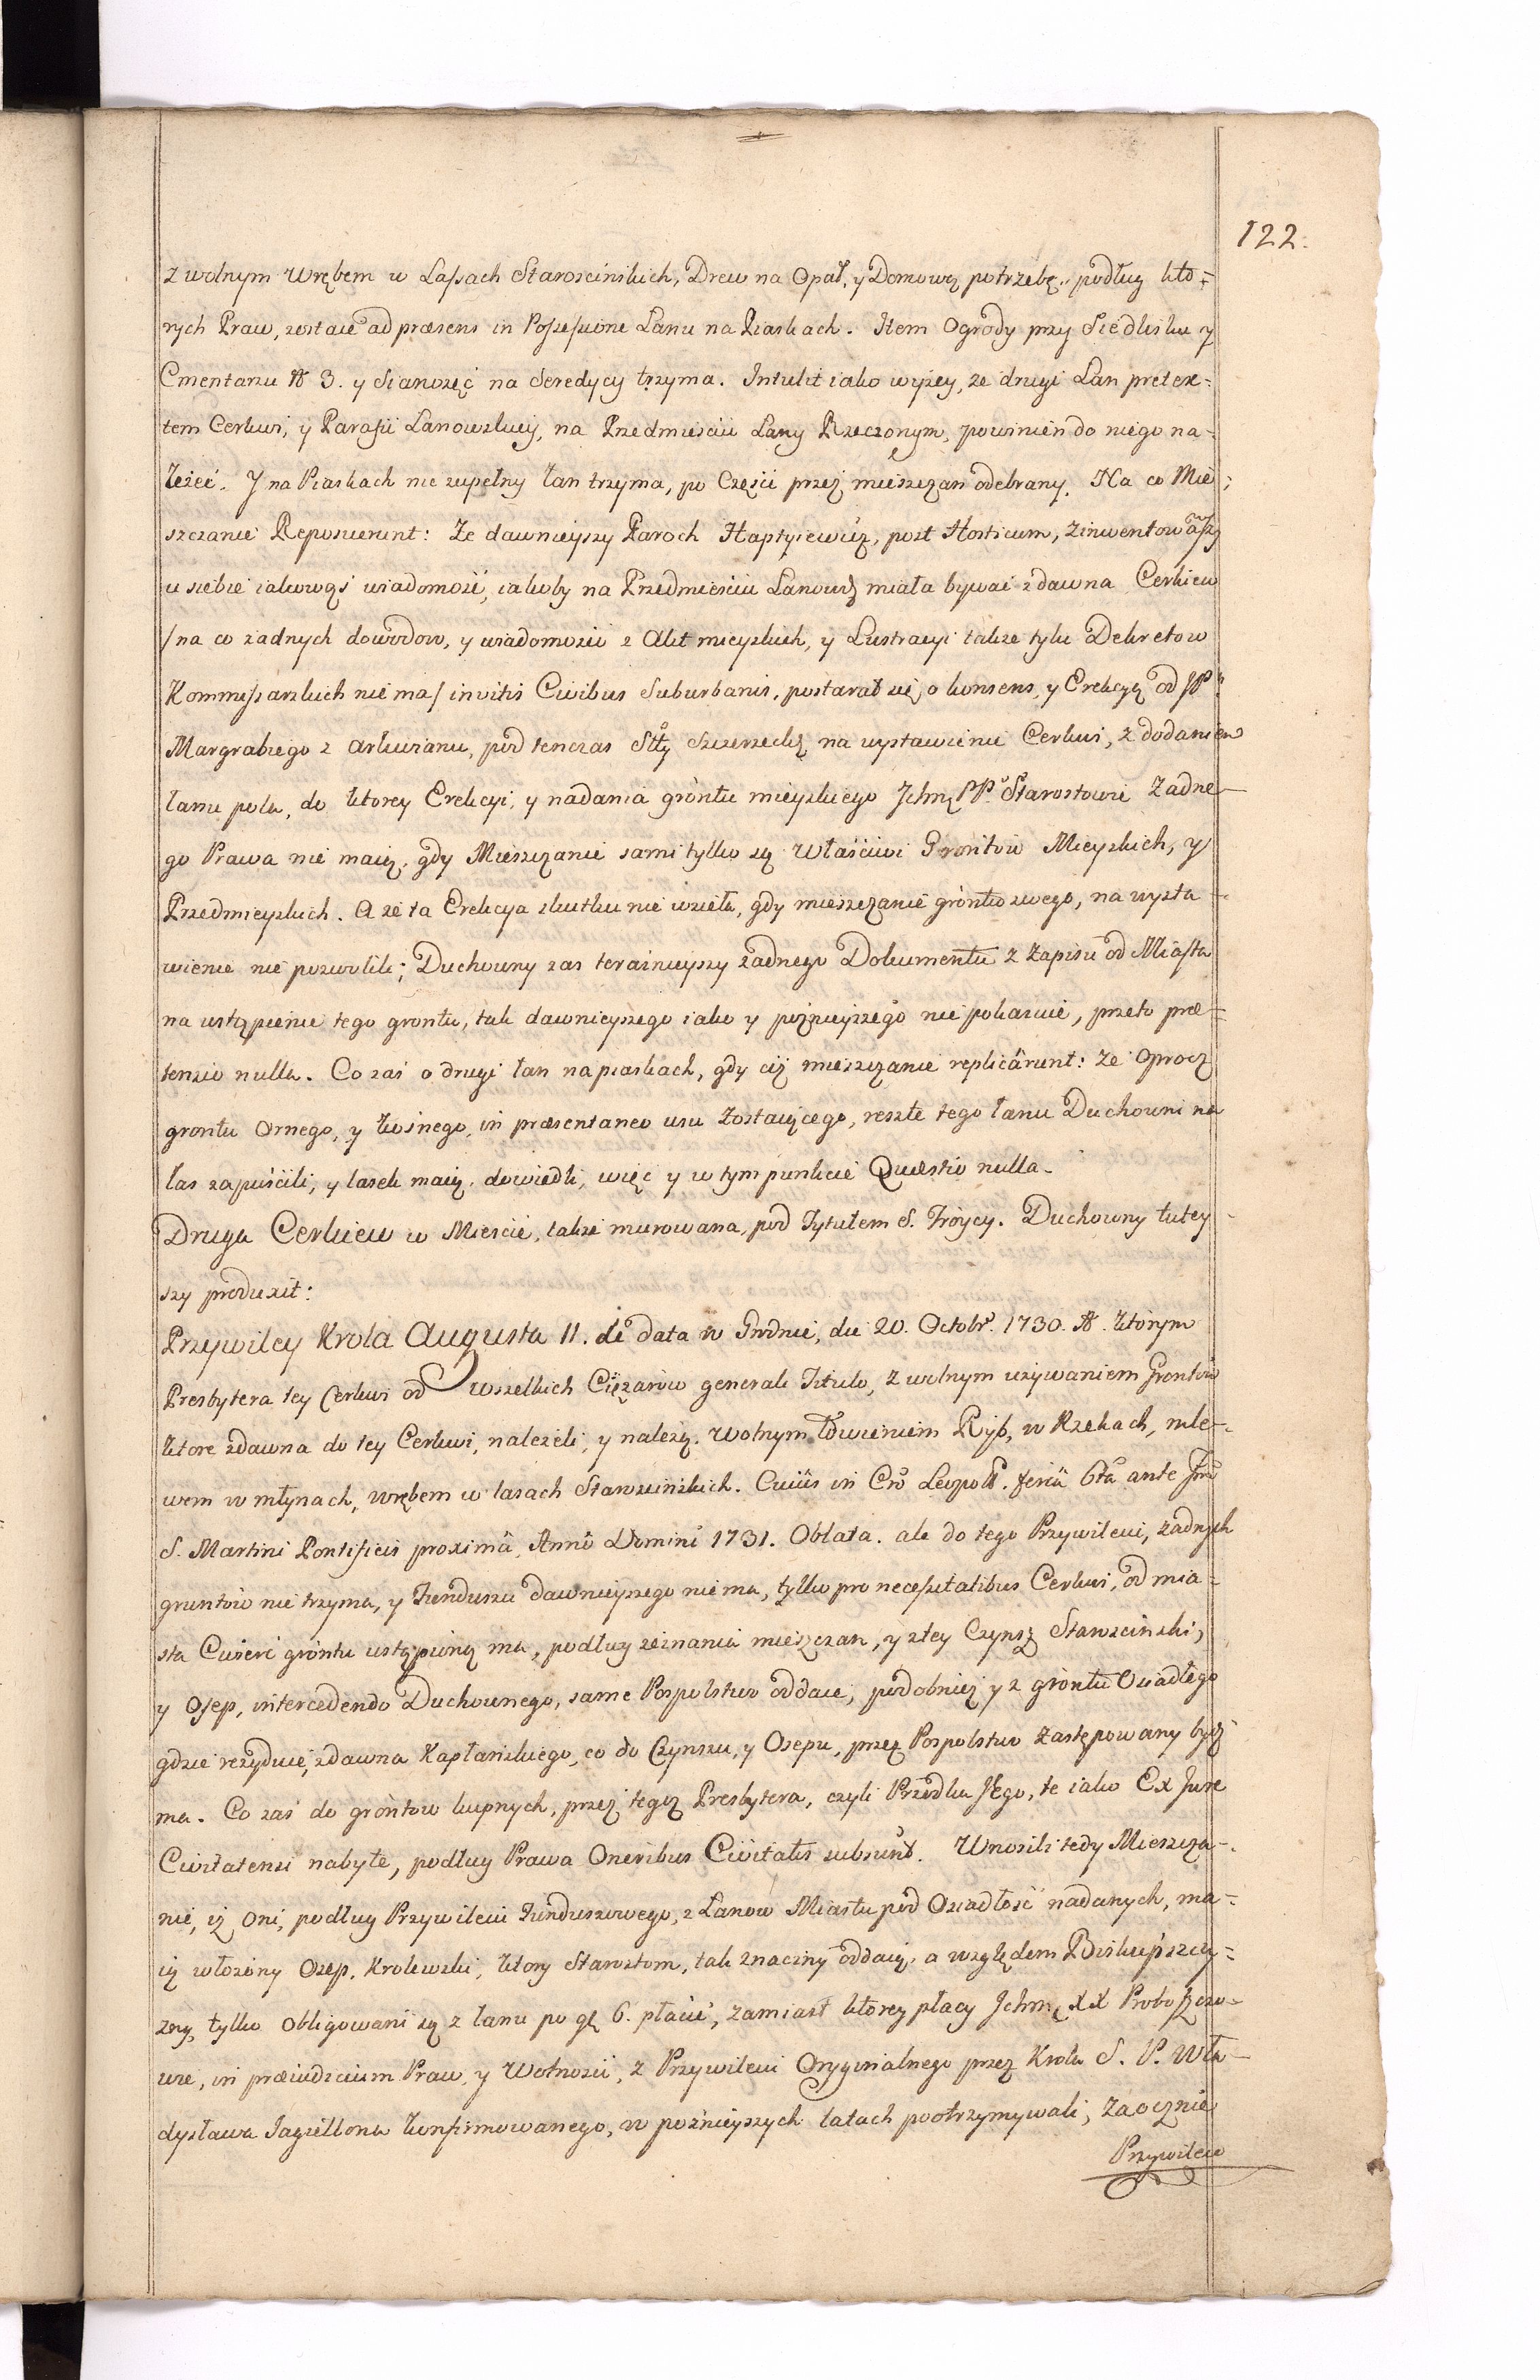 122.
z wolnym Wrębem w Lassach Starościńskich, Drew na Opał, y Domową potrzebę, podług któ=
rych Praw, zostaie ad præsens in Possessione Łanu na Piaskach. Item Ogrody przy Siedlisku y
Cmentarzu № 3. y Sianożęć na Seredycy trzyma. Intulit iako wyżey, że drugi Łan pretex=
tem Cerkwi, y Parafii Łanowskiey, na Przedmieściu Łany Rzeczonym, powinien do niego na=
leżeć. Y na Piaskach nie zupełny łan trzyma, po Części przez mieszczan odebrany. Na co Mie=
szczanie Reposuerunt: Że dawnieyszy Paroch Haptyiewicz, post Hosticum, zinwentowawszy
u siebie iakowąś wiadomość, iakoby na Przedmieściu Łanowsk miała bywać zdawna Cerkiew
/na co żadnych dowodow, y wiadomości z Akt mieyskich, y Lustracyi także tylu Dekretow
Kommissarskich nie ma/ invitis Civibus Suburbanis, postarał się o konsens, y Erekcyą od JP.
Margrabiego z Arkuszanu, pod tenczas Stty Szczerzeckg na wystawienie Cerkwi, z dodaniem
łanu pola, do ktorey Erekcyi, y nadania gróntu mieyskiego Jchmę PP. Starostowie Żadne=
go Prawa nie maią, gdy Mieszczanie sami tylko są Właściwi Grontow Mieyskich, y
Przedmieyskich. A że ta Erekcya skutku nie wzieła, gdy mieszczanie gróntu swego, na wysta=
wienie nie pozwolili; Duchowny zas teraźnieyszy żadnego Dokumentu z Zapisu od Miasta
na ustąpienie tego grontu, tak dawnieyszego iako y poźnieyszego nie pokazuie, przeto præ=
tensio nulla. Co zaś o drugi łan na piaskach, gdy ciż mieszczanie replicârunt: że oprocz
grontu Ornego, y Łośnego, in præsentaneo usu zostaiącego, resztę tego łanu Duchowni na
las zapuścili, y lasek maią, dowiedli, więc y w tym punkcie Quæstio nulla.
Druga Cerkiew w Mieście, także murowana, pod Tytułem S. Tróycy. Duchowny tutey=
szy produxit:
Przywiley Krola Augusta II. de data w Grodnie, die 20. Octobr. 1730. A. którym
Presbytera tey Cerkwi od wszelkich Ciężarów generali Titulo, z wolnym używaniem Grontów
ktore zdawna do tey Cerkwi, należeli, y należą. Wolnym Łowieniem Ryb, w Rzekach, mle=
wem w młynach, wrębem w lasach Starościńskich. Cuius in Cro Leopold. feriâ 6tâ ante Fm
S. Martini Pontificis proximâ, Anno Domini 1731. Oblata. ale do tego Przywileiu, żadnych
gruntów nie trzyma, y Funduszu dawnieyszego nie ma, tylko pro necessitatibus Cerkwi, od mia=
sta Cwierć gróntu ustąpioną ma, podług zeznania mieszczan, y z tey Czynsz Starościński,
y Osep, intercedendo Duchownego, same Pospolstwo oddaie, podobnież y z gróntu Osiadłego
gdzie rezyduie, zdawna Kapłańskiego, co do Czynszu, y Osepu, przez Pospolstwo zastępowany bydź
ma. Co zaś do gróntow kupnych, przez tegoż Presbytera, czyli Przodka Jego, te iako Ex Jure
Civitatensi nabyte, podług Prawa Oneribus Civitatis subsunt. Wnosili tedy Mieszcza=
nie, iż Oni, podług Przywileiu Funduszowego, z Łanow Miastu pod Osiadłość nadanych, ma=
ią włożony Osep. Krolewski, ktory Starostom, tak znaczny oddaią, a względem Biskupszczy=
zny, tylko Obligowani są z łanu po gr 6. płacić, zamiast ktorey płacy Jchmę XX Proboszczo=
wie, in præiudicium Praw, y Wolności, z Przywileiu Oryginalnego przez Krola S. P. Wła=
dysława Jagiellona konfirmowanego, w poźnieyszych latach pootrzymywali, Zaocznie
Przywileie